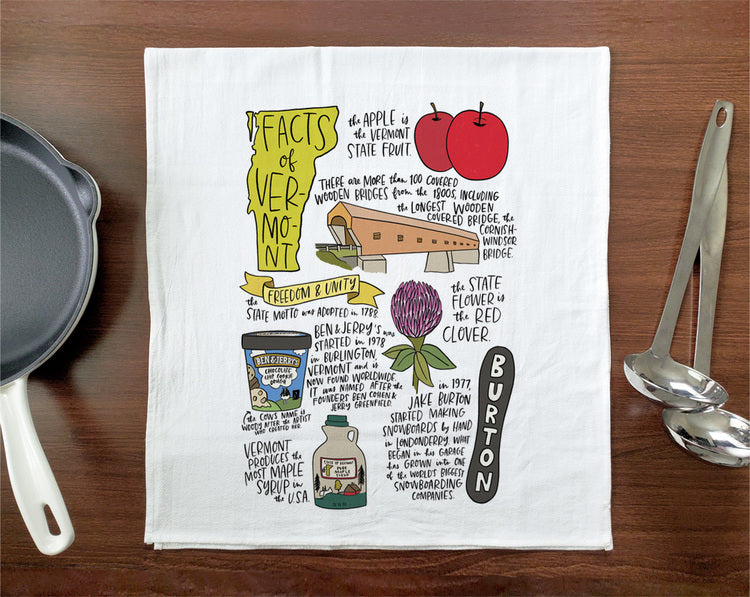 FACTS
of
VER-
MO-
NT
the APPLE is
the VERMONT
STATE FRUIT.
THERE ARE MORE than 100 COVERED
WOODEN BRIDGES from the 1800s, INCLUDING
the LONGEST WOODEN
COVERED BRIDGE, the
CORNISH-
WINDSOR
BRIDGE.
FREEDOM & UNITY
the
STATE MOTTO was ADOPTED in 1788.
the STATE
FLOWER is
the RED
CLOVER.
BEN & JERRY'S was
STARTED in 1978
in BURLINGTON,
VERMONT and is
NOW FOUND WORLDWIDE.
IT was NAMED AFTER the
FOUNDERS BEN COHEN &
JERRY GREENFIELD.
BEN & JERRY'S
CHOCOLATE
CHIP COOKIE
DOUGH
the COW'S NAME is
WOODY AFTER the ARTIST
WHO CREATED HER.
in 1977,
JAKE BURTON
STARTED MAKING
SNOWBOARDS by HAND
in LONDONDERRY. WHAT
BEGAN in his GARAGE
has GROWN into ONE
of the WORLD'S BIGGEST
SNOWBOARDING
COMPANIES.
BURTON
VERMONT
PRODUCES the
MOST MAPLE
SYRUP in
the U.S.A.
STATE OF VERMONT
PURE
MAPLE
SYRUP